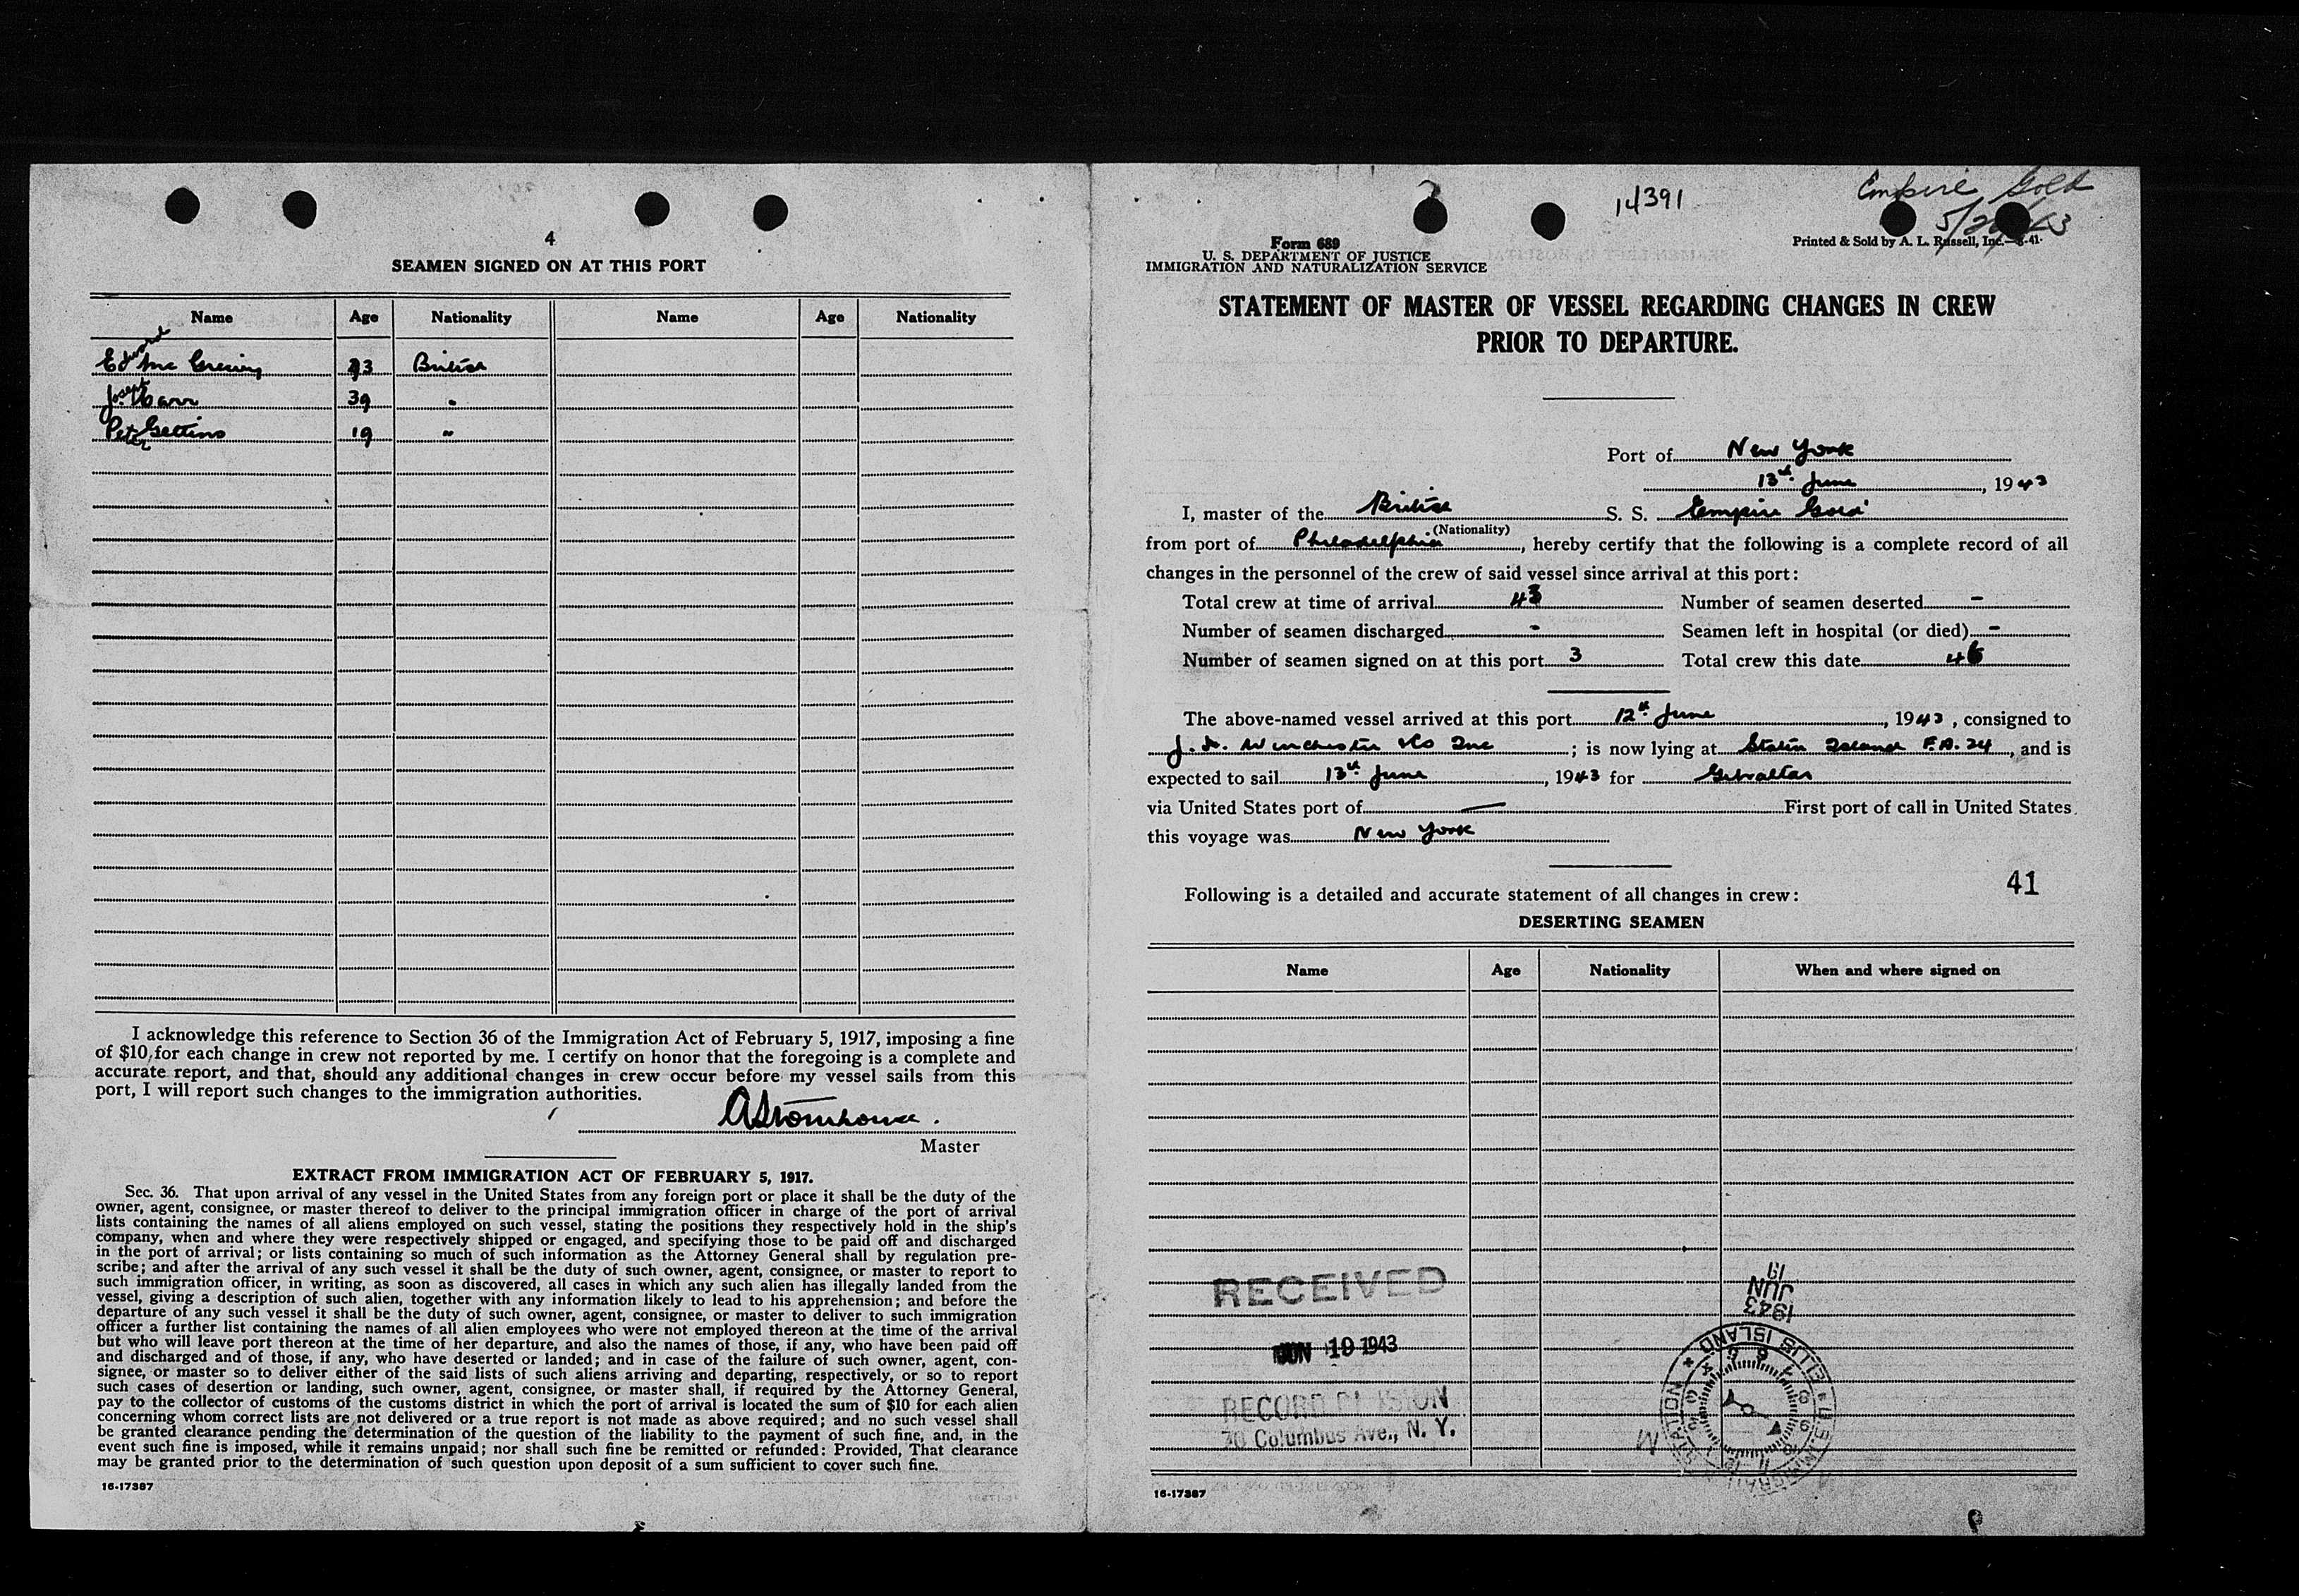 4
SEAMEN SIGNED ON AT THIS PORT
Name Age Nationality Name Age Nationality
Edward Mc 3 British
Joseph 39 "
Peter Gettins 19 "
I acknowledge this reference to Section 36 of the Immigration Act of February 5, 1917, imposing a fine
of $10 for each change in crew not reported by me. I certify on honor that the foregoing is a complete and
accurate report, and that, should any additional changes in crew occur before my vessel sails from this
port, I will report such changes to the immigration authorities.
Master
EXTRACT FROM IMMIGRATION ACT OF FEBRUARY 5, 1917.
Sec. 36. That upon arrival of any vessel in the United States from any foreign port or place it shall be the duty of the
owner, agent, consignee, or master thereof to deliver to the principal immigration officer in charge of the port of arrival
lists containing the names of all aliens employed on such vessel, stating the positions they respectively hold in the ship's
company, when and where they were respectively shipped or engaged, and specifying those to be paid off and discharged
in the port of arrival; or lists containing so much of such information as the Attorney General shall by regulation pre-
scribe; and after the arrival of any such vessel it shall be the duty of such owner, agent, consignee, or master to report to
such immigration officer, in writing, as soon as discovered, all cases in which any such alien has illegally landed from the
vessel, giving a description of such alien, together with any information likely to lead to his apprehension; and before the
departure of any such vessel it shall be the duty of such owner, agent, consignee, or master to deliver to such immigration
officer a further list containing the names of all alien employees who were not employed thereon at the time of the arrival
but who will leave port thereon at the time of her departure, and also the names of those, if any, who have been paid off
and discharged and of those, if any, who have deserted or landed; and in case of the failure of such owner, agent, con-
signee, or master so to deliver either of the said lists of such aliens arriving and departing, respectively, or so to report
such cases of desertion or landing, such owner, agent, consignee, or master shall, if required by the Attorney General,
pay to the collector of customs of the customs district in which the port of arrival is located the sum of $10 for each alien
concerning whom correct lists are not delivered or a true report is not made as above required; and no such vessel shall
be granted clearance pending the determination of the question of the liability to the payment of such fine, and, in the
event such fine is imposed, while it remains unpaid; nor shall such fine be remitted or refunded: Provided, That clearance
may be granted prior to the determination of such question upon deposit of a sum sufficient to cover such fine.
16-17387
14391
Empire Gold
Form 689
U. S. DEPARTMENT OF JUSTICE
IMMIGRATION AND NATURALIZATION SERVICE
Printed & Sold by A. L. Russell, Inc.
STATEMENT OF MASTER OF VESSEL REGARDING CHANGES IN CREW
PRIOR TO DEPARTURE.
Port of New York
13th June, 1943
I, master of the British S. S. Empire Gold
(Nationality)
from port of Philadelphia, hereby certify that the following is a complete record of all
changes in the personnel of the crew of said vessel since arrival at this port:
Total crew at time of arrival 43 Number of seamen deserted -
Number of seamen discharged - Seamen left in hospital (or died) -
Number of seamen signed on at this port 3 Total crew this date 46
The above-named vessel arrived at this port 12th June, 1943, consigned to
Winchester & Co Inc; is now lying at Staten Island F.A. 24, and is
expected to sail 13th June, 1943 for Gibraltar
via United States port of — First port of call in United States
this voyage was New York
41
Following is a detailed and accurate statement of all changes in crew:
DESERTING SEAMEN
Name Age Nationality When and where signed on
RECEIVED
JUN 19 1943
RECORD DIVISION
70 Columbus Ave., N. Y.
19
JUN
1943
ELLIS ISLAND
16-17387